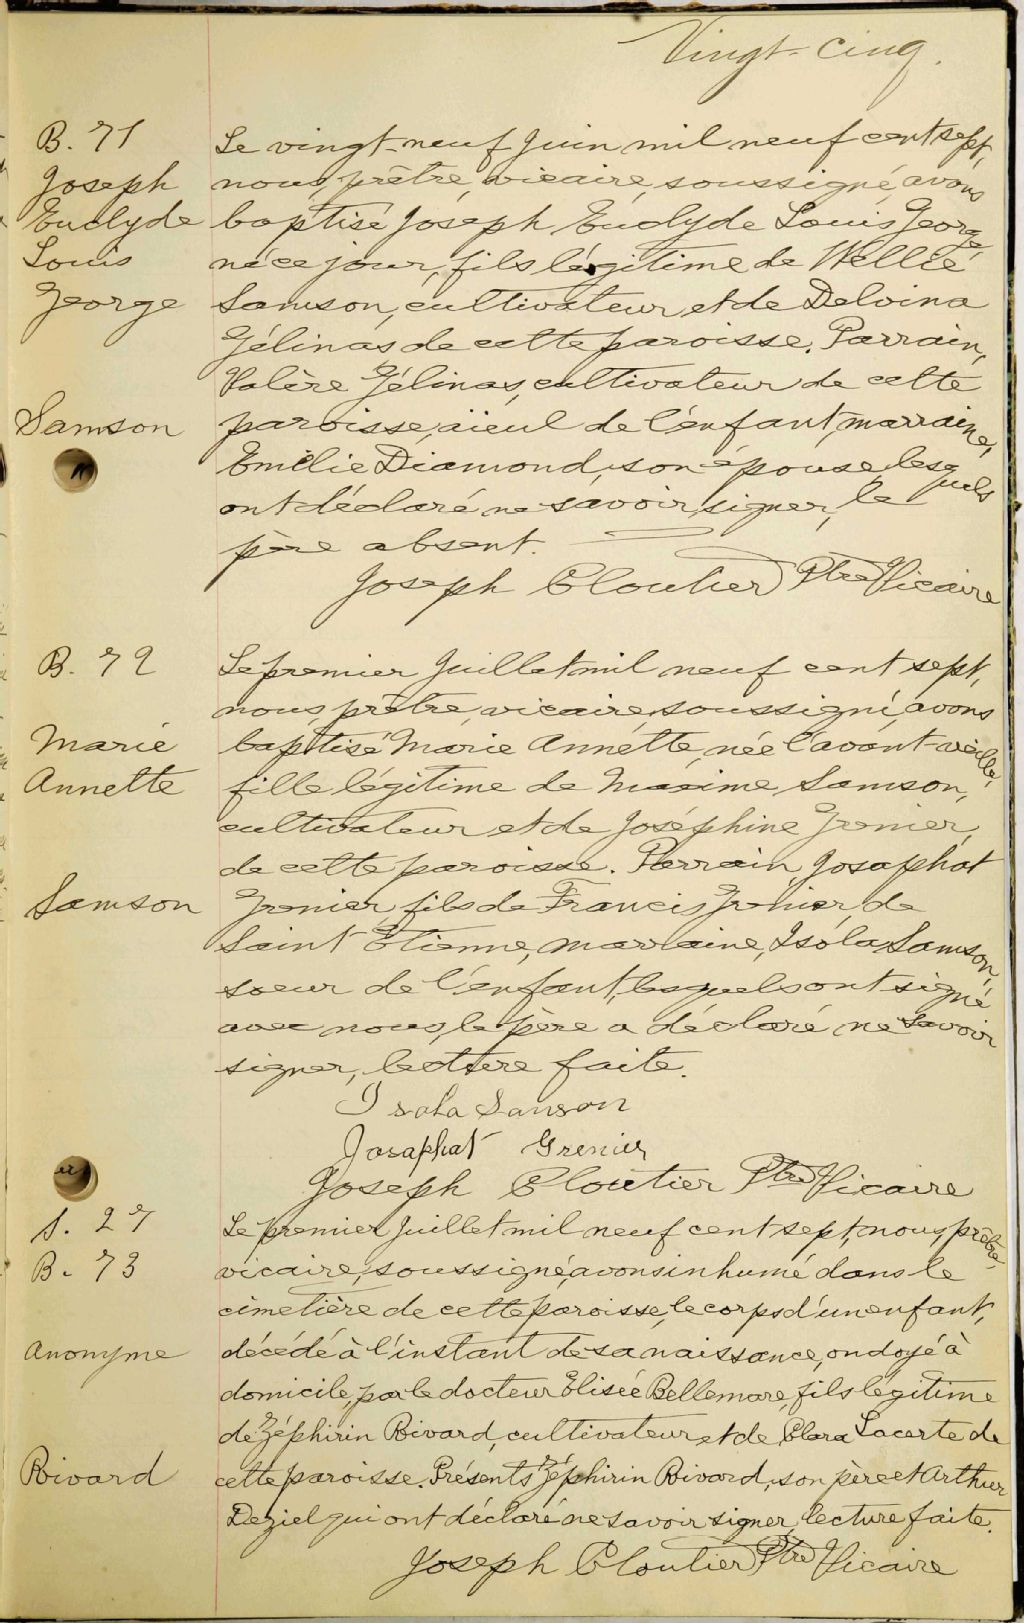 Vingt-cinq.
B. 71
Joseph
Euclyde
Louis
George
Samson
Le vingt-neuf juin mil neuf cent sept,
nous, prêtre, vicaire, soussigné, avons
baptisé Joseph Euclyde Louis George,
né ce jour, fils légitime de Wellie
Samson, cultivateur et de Delvina
Gélinas de cette paroisse. Parrain,
Valère Gélinas, cultivateur de cette
paroisse, aïeul de l'enfant, marraine,
Emélie Diamond, son épouse, lesquels
ont déclaré ne savoir signer, le
père absent.
Joseph Cloutier Ptre Vicaire
B. 72
Marie
Annette
Samson
Le premier Juillet mil neuf cent sept,
nous, prêtre, vicaire, soussigné, avons
baptisé Marie Annette, née l'avant-veille,
fille légitime de Maxime Samson,
cultivateur et de Joséphine Grenier,
de cette paroisse. Parrain, Josaphat
Grenier, fils de Francis Grenier, de
Saint Etienne, marraine, Isola Samson,
soeur de l'enfant, lesquels ont signé
avec nous, le père a déclaré ne savoir
signer, lecture faite.
Isola Samson
Josaphat Grenier
Joseph Cloutier Ptre Vicaire
S. 27
B. 73
Anonyme
Rivard
Le premier Juillet mil neuf cent sept, nous, prêtre,
vicaire, soussigné, avons inhumé dans le
cimetière de cette paroisse, le corps d'un enfant,
décédé à l'instant de sa naissance, ondoyé à
domicile, par le docteur Elisée Bellemare, fils légitime
de Zéphirin Rivard, cultivateur, et de Clara Lacerte de
cette paroisse. Présents Zéphirin Rivard, son père et Arthur
Deziel qui ont déclaré ne savoir signer, lecture faite.
Joseph Cloutier Ptre Vicaire